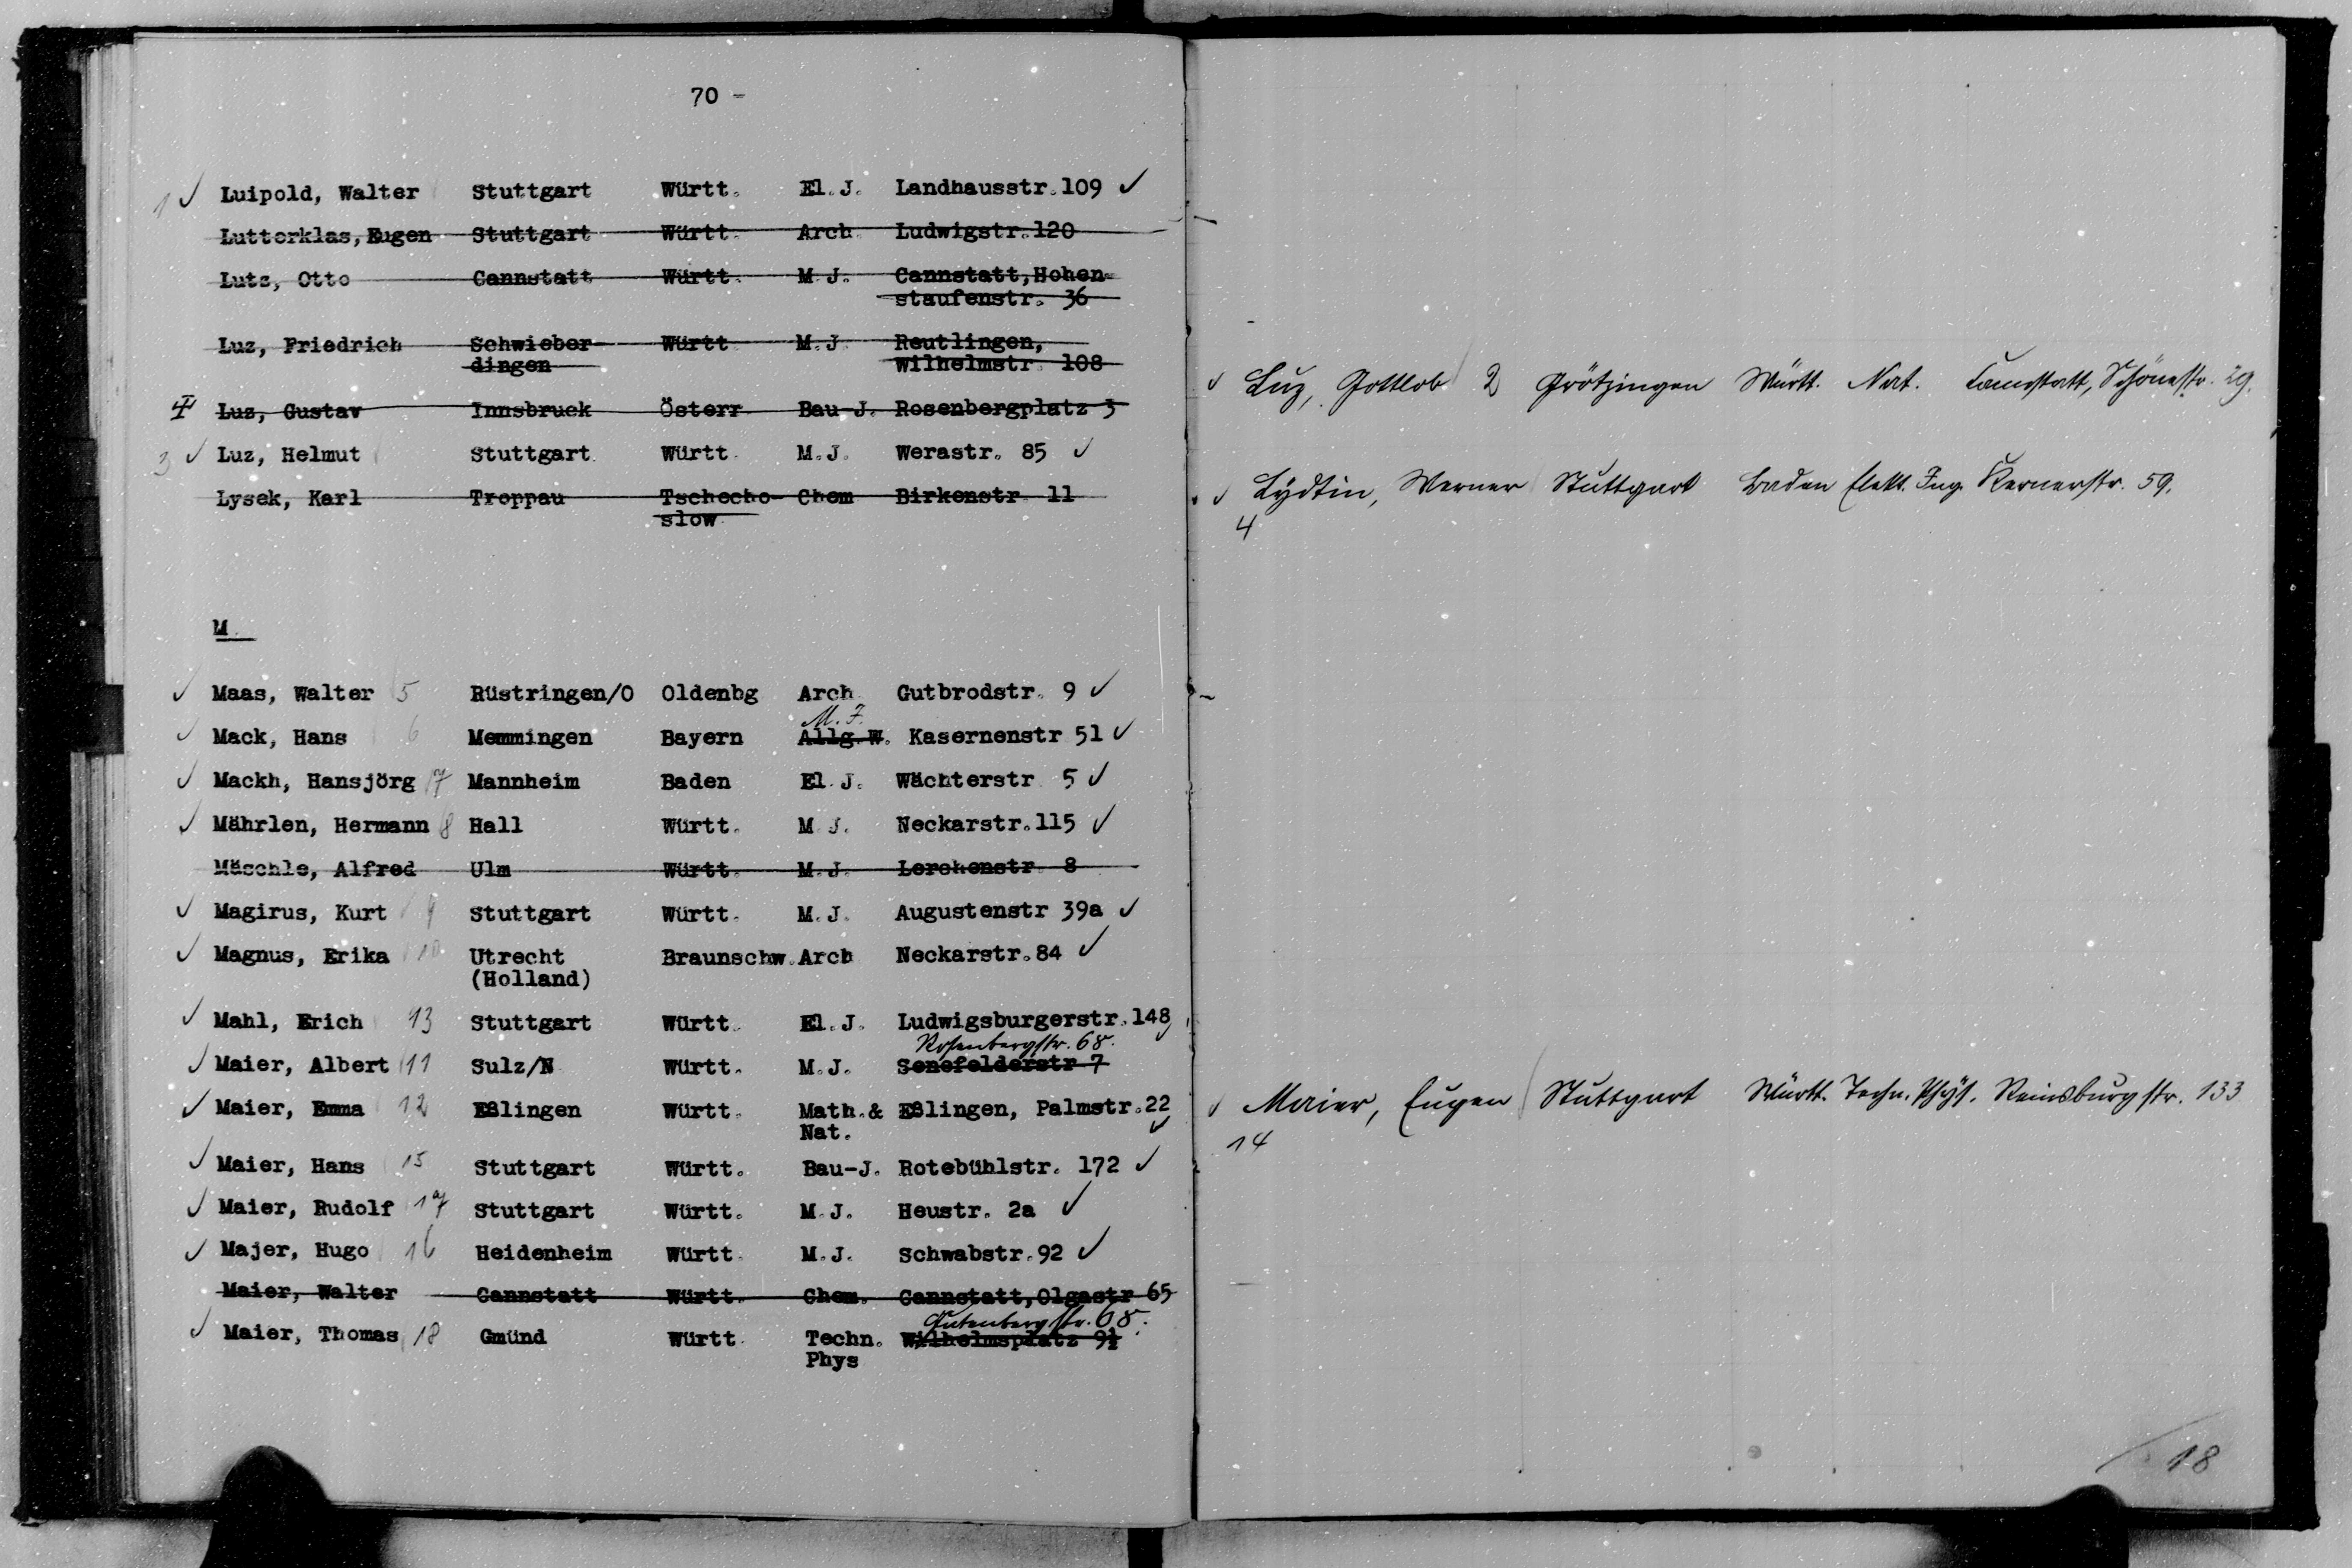 70 -
1 ✓ Luipold, Walter Stuttgart Württ. El. J. Landhausstr. 109 ✓
Lutterklas, Eugen Stuttgart Württ. Arch Ludwigstr. 120
Lutz, Otto Cannstatt Württ. M J. Cannstatt, Hohen-
staufenstr. 36
Luz, Friedrich Schwieber- Württ M.J Reutlingen,
dingen Wilhelmstr 108
Luz, Gustav Innsbruck Österr Bau-J. Rosenbergplatz 3
3 ✓ Luz, Helmut Stuttgart Württ M.J. Werastr. 85 ✓
Lysek, Karl Troppau Tschecho- Chem Birkenstr 11
slow
M
✓ Maas, Walter 5 Rüstringen/O Oldenbg Arch Gutbrodstr. 9 ✓
M. J.
✓ Mack, Hans 6 Memmingen Bayern Allg. W. Kasernenstr 51 ✓
✓ Mackh, Hansjörg 7 Mannheim Baden El. J. Wächterstr 5 ✓
✓ Mährlen, Hermann 8 Hall Württ. M J. Neckarstr. 115 ✓
Mäschle, Alfred Ulm Württ. M.J. Lerchenstr 8
✓ Magirus, Kurt 9 Stuttgart Württ. M.J. Augustenstr 39a ✓
✓ Magnus, Erika 10 Utrecht Braunschw. Arch Neckarstr. 84 ✓
(Holland)
✓ Mahl, Erich 13 Stuttgart Württ. El. J. Ludwigsburgerstr. 148
Rosenbergstr. 68.
✓ Maier, Albert 11 Sulz/N Württ. M.J. Senefelderstr 7
✓ Maier, Emma 12 Eßlingen Württ. Math. & Eßlingen, Palmstr. 22
Nat. ✓
✓ Maier, Hans 15 Stuttgart Württ. Bau-J. Rotebühlstr. 172 ✓
✓ Maier, Rudolf 17 Stuttgart Württ. M.J. Heustr. 2a ✓
✓ Majer, Hugo 16 Heidenheim Württ. M.J. Schwabstr. 92 ✓
Maier, Walter Cannstatt Württ. Chem. Cannstatt, Olgastr 65
Gutenbergstr. 68.
✓ Maier, Thomas 18 Gmünd Württ Techn. Wilhelmsplatz 9½
Phys
✓ Luz, Gottlob 2 Grötzingen Württ. Nat. Cannstatt, Schönestr. 29.
✓ Lydtin, Werner Stuttgart Baden Elekt. Ing. Kernerstr. 59.
4
✓ Maier, Eugen Stuttgart Württ. Techn. Phys. Reinsburgstr. 133
14
18